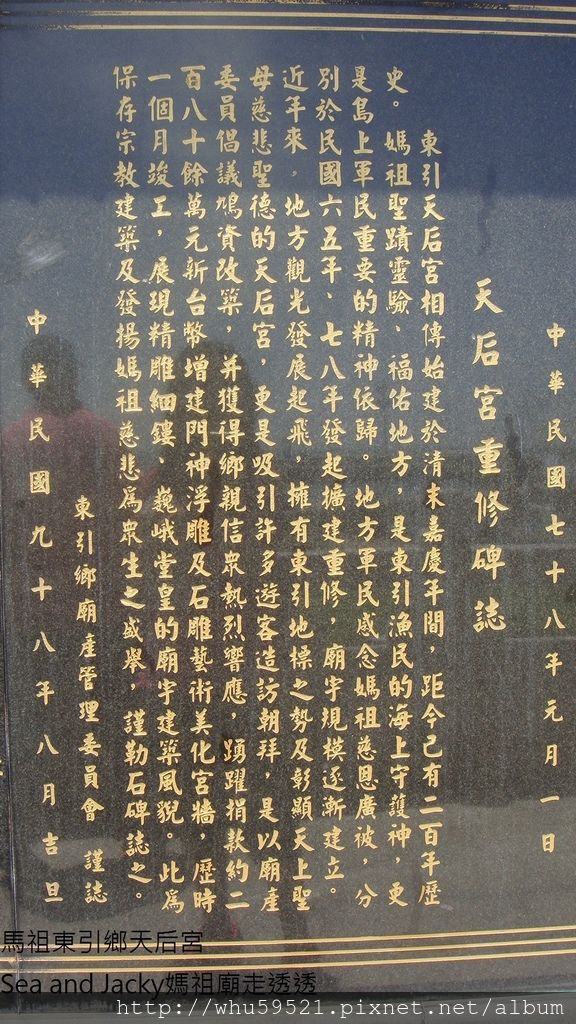 中華民國七十八年元月一日
天后宮重修碑誌
東引天后宮相傳始建於清末嘉慶年間，距今已有二百年歷
史。媽祖聖蹟靈驗、福佑地方，是東引漁民的海上守護神，更
是島上軍民重要的精神依歸。地方軍民感念媽祖慈恩廣被，分
別於民國六五年、七八年發起擴建重修，廟宇規模逐漸建立。
近年來，地方觀光發展起飛，擁有東引地標之勢及彰顯天上聖
母慈悲聖德的天后宮，更是吸引許多遊客造訪朝拜，是以廟產
委員倡議鳩資改築，并獲得鄉親信眾熱烈響應，踴躍捐款約二
百八十餘萬元新台幣增建門神浮雕及石雕藝術美化宮牆，歷時
一個月竣工，展現精雕細鏤、巍峨堂皇的廟宇建築風貌。此為
保存宗教建築及發揚媽祖慈悲為眾生之盛舉，謹勒石碑誌之。
東引鄉廟產管理委員會 謹誌
中華民國九十八年八月吉旦
馬祖東引鄉天后宮
Sea and Jacky媽祖廟走透透
http://whu59521.pixnet.net/album